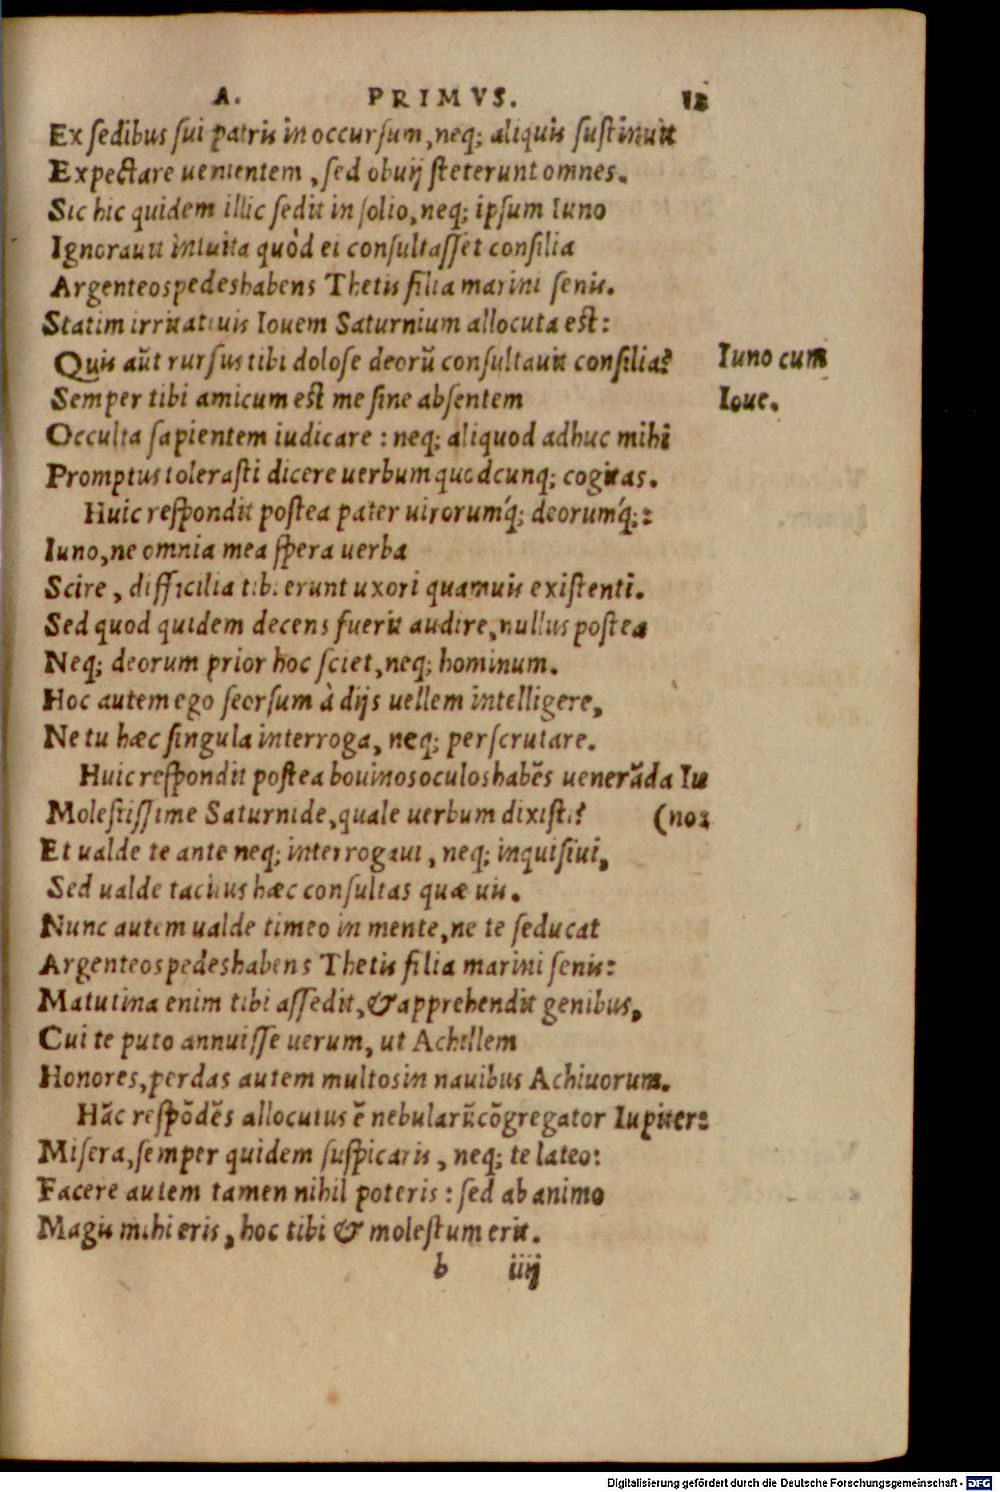 A. PRIMVS. 12
Ex sedibus sui patris in occursum, neq; aliquis sustinuit
Expectare uenientem, sed obuij steterunt omnes.
Sic hic quidem illic sedit in solio, neq; ipsum Iuno
Ignorauit intuita quòd ei consultasset consilia
Argenteos pedes habens Thetis filia marini senis.
Statim irritatiuis Iouem Saturnium allocuta est:
Quis aũt rursus tibi dolose deorũ consultauit consilia?
Iuno cum
Semper tibi amicum est me sine absentem
Ioue.
Occulta sapientem iudicare: neq; aliquod adhuc mihi
Promptus tolerasti dicere uerbum quodcunq; cogitas.
Huic respondit postea pater uirorumq́; deorumq́;:
Iuno, ne omnia mea spera uerba
Scire, difficilia tibi erunt uxori quamuis existenti.
Sed quod quidem decens fuerit audire, nullus postea
Neq; deorum prior hoc sciet, neq; hominum.
Hoc autem ego seorsum à dijs uellem intelligere,
Ne tu hæc singula interroga, neq; perscrutare.
Huic respondit postea bouinos oculos habẽs uenerãda Iu
Molestissime Saturnide, quale uerbum dixisti? (no:
Et ualde te ante neq; interrogaui, neq; inquisiui,
Sed ualde tacitus hæc consultas quæ uis.
Nunc autem ualde timeo in mente, ne te seducat
Argenteos pedes habens Thetis filia marini senis:
Matutina enim tibi assedit, & apprehendit genibus,
Cui te puto annuisse uerum, ut Achillem
Honores, perdas autem multos in nauibus Achiuorum.
Hãc respõdẽs allocutus ẽ nebularũ cõgregator Iupiter:
Misera, semper quidem suspicaris, neq; te lateo:
Facere autem tamen nihil poteris: sed ab animo
Magis mihi eris, hoc tibi & molestum erit.
b iiij
Digitalisierung gefördert durch die Deutsche Forschungsgemeinschaft - DFG